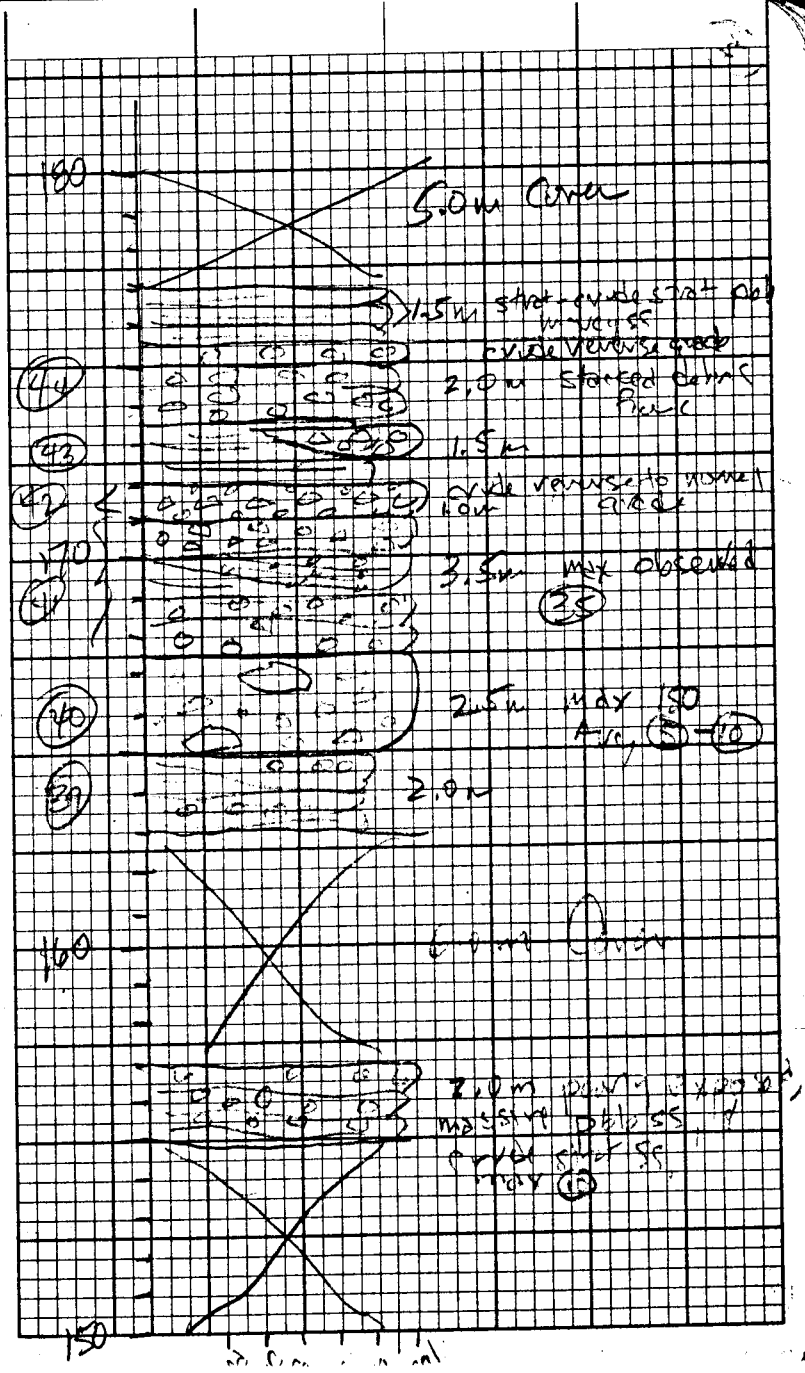 180
5.0m Cover
1.5m strat-crude strat peb
massive ss
crude reverse grade
44
2.0m stacked debris
flows
43
1.5m
42
crude reverse to normal
1.0m grade
170
3.5m max observed
41
35
40
2.5m max 150
Ave, 5-10
39
2.0m
160
6.0m Cover
2.0m poorly exposed,
massive pebb ss
crude strat ss
max 10
150